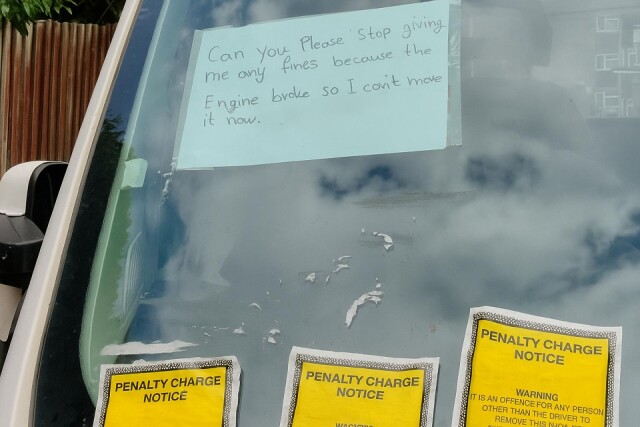 Can you Please Stop giving
me any fines because the
Engine broke so I can't move
it now.
PENALTY CHARGE
NOTICE
PENALTY CHARGE
NOTICE
PENALTY CHARGE
NOTICE
WARNING
IT IS AN OFFENCE FOR ANY PERSON
OTHER THAN THE DRIVER TO
REMOVE THIS